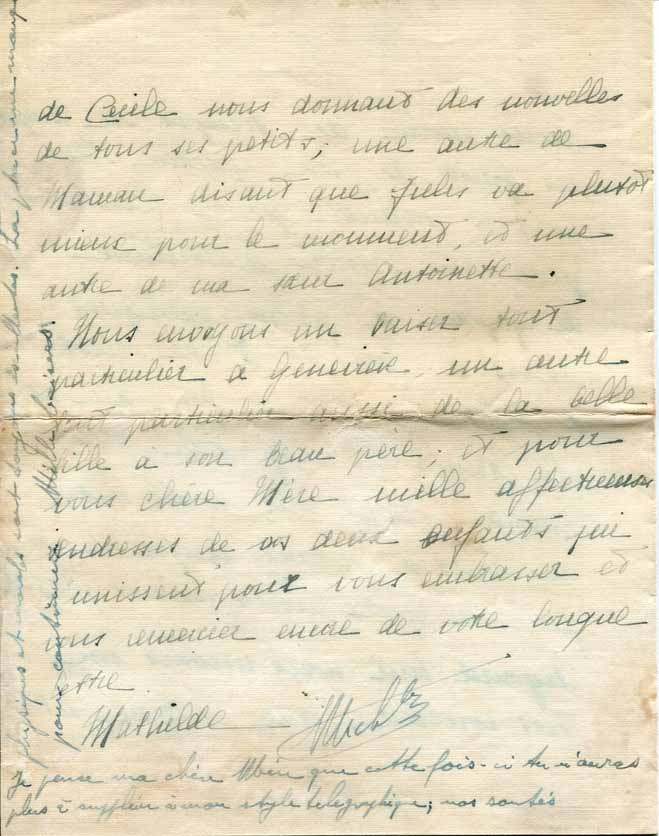 de Cécile nous donnant des nouvelles
de tous ses petits, une autre de
Maman disant que Jules va plutôt
mieux pour le momment, et une
autre de ma sœur Antoinette.
Nous envoyons un baiser tout
particulier à Geneviève, un autre
tout particulier aussi de la belle
fille à son beau père, et pour
vous chère Mère mille affectueuses
tendresses de vos deux enfants qui
s'unissent pour vous embrasser et
vous remercier encore de votre longue
lettre.
Mathilde
Je pense ma chère Mère que cette fois-ci tu n'auras
plus à suppléer à mon style télégraphique; nos santés
physiques et morales sont toujours excellentes. La place me manque
pour continuer. Mille baisers.